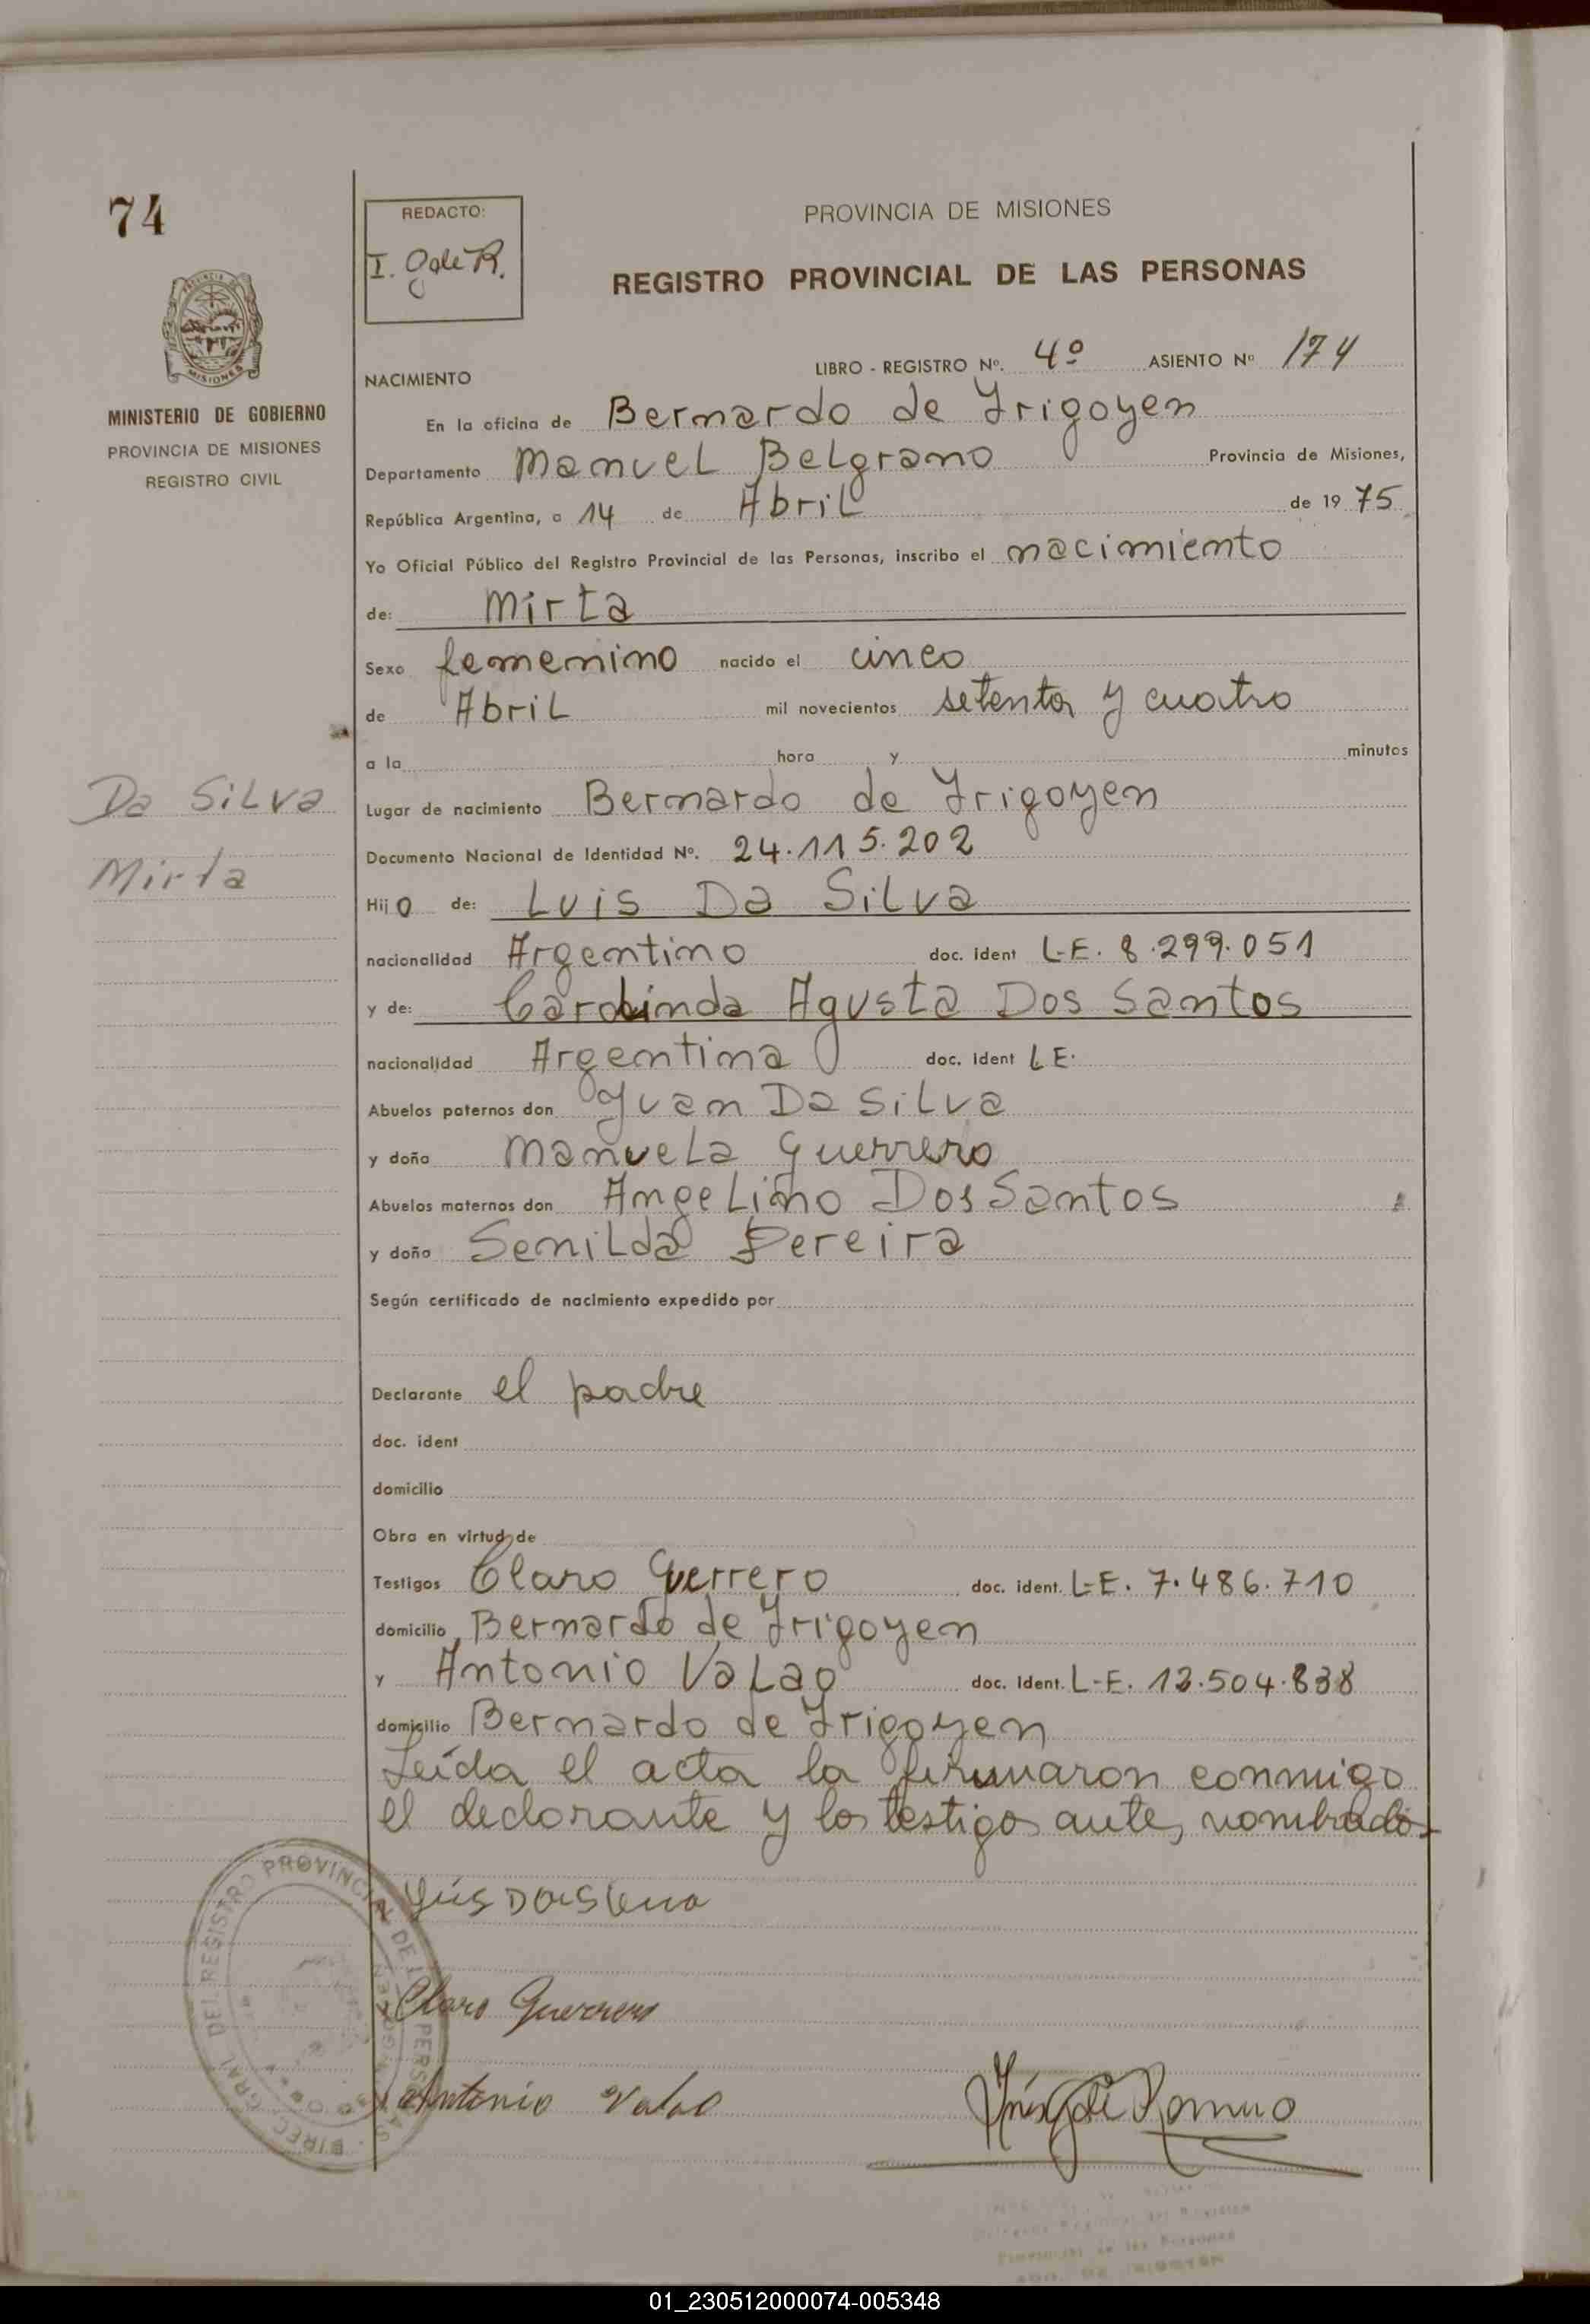 74
REDACTO:
I. G de R.
PROVINCIA DE MISIONES
REGISTRO PROVINCIAL DE LAS PERSONAS
MISIONES
MINISTERIO DE GOBIERNO
PROVINCIA DE MISIONES
REGISTRO CIVIL
NACIMIENTO LIBRO - REGISTRO Nº. 4º ASIENTO Nº 174
En la oficina de Bernardo de Irigoyen
Departamento Manuel Belgrano Provincia de Misiones,
República Argentina, a 14 de Abril de 19 75
Yo Oficial Público del Registro Provincial de las Personas, inscribo el nacimiento
de: Mirta
Sexo femenino nacido el cinco
de Abril mil novecientos setenta y cuatro
a la hora y minutos
Da Silva
Mirta
Lugar de nacimiento Bernardo de Irigoyen
Documento Nacional de Identidad Nº. 24.115.202
Hijo de: Luis Da Silva
nacionalidad Argentino doc. ident L.E. 8.299.051
y de: Carolinda Agusta Dos Santos
nacionalidad Argentina doc. ident L E.
Abuelos paternos don Juan Da Silva
y doña Manuela Guerrero
Abuelos maternos don Angelino Dos Santos
y doña Senilda Pereira
Según certificado de nacimiento expedido por
Declarante el padre
doc. ident
domicilio
Obra en virtud de
Testigos Claro Guerrero doc. ident. L.E. 7.486.710
domicilio Bernardo de Irigoyen
y Antonio Valao doc. Ident. L.E. 12.504.838
domicilio Bernardo de Irigoyen
Leída el acta la firmaron conmigo
el declarante y los testigos antes nombrados
DIREC. GRAL. DEL REGISTRO PROVINCIAL DE LAS PERSONAS
Claro Guerrero
Antonio Valao
01_230512000074-005348